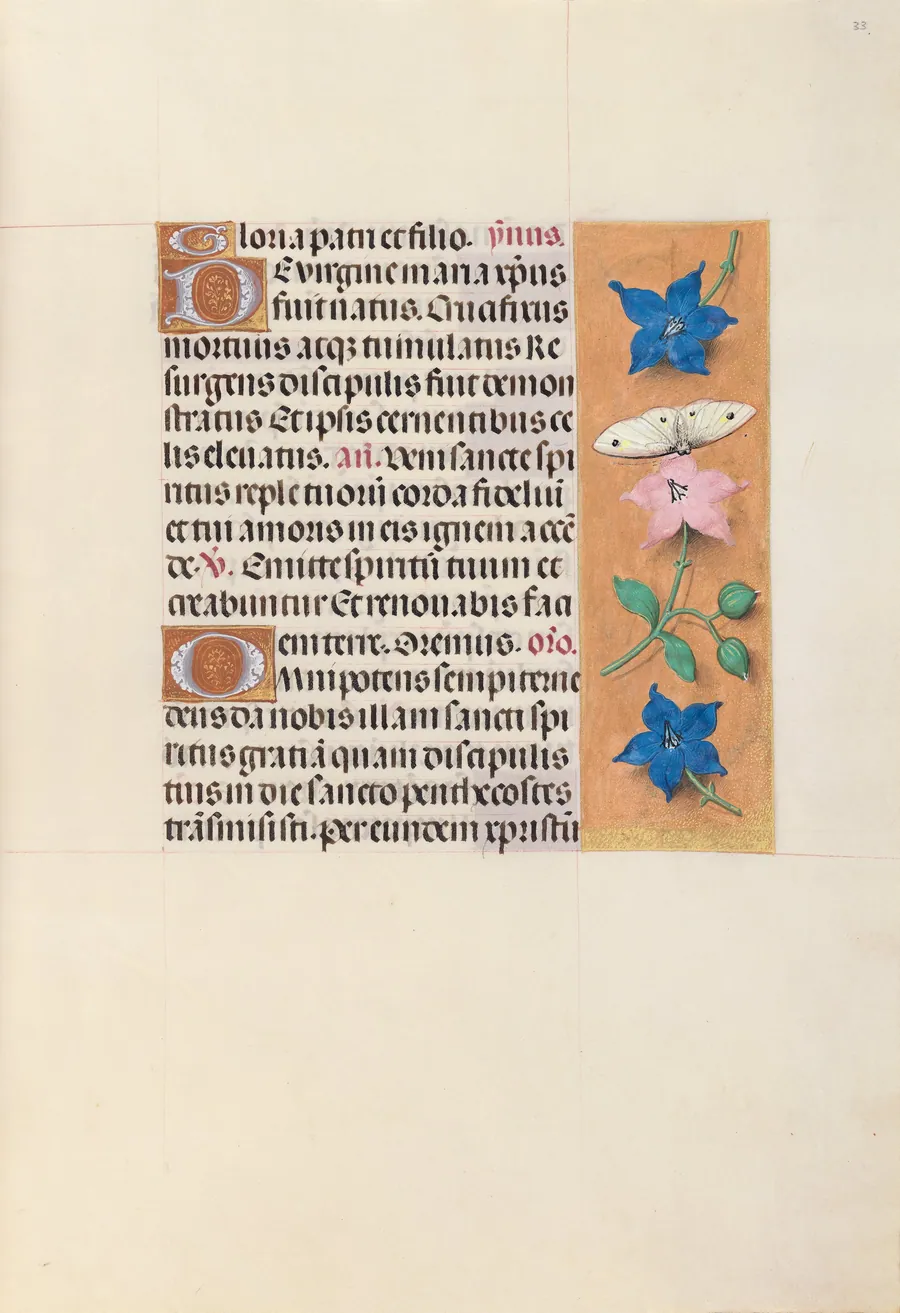 33
Gloria patri et filio. ỹmus.
DE virgine maria xp̃us
fuit natus. Crucifixus
mortuus atqꝫ tumulatus Re
surgens discipulis fuit demon
stratus Et ipsis cernentibus ce
lis eleuatus. añ. Veni sancte spi
ritus reple tuorũ corda fideliũ
et tui amoris in eis ignem accẽ
de. ℣. Emitte spiritũ tuum et
creabuntur Et renouabis faci
em terre. Oremus. orõ.
OMnipotens sempiterne
deus da nobis illam sancti spi
ritus gratiã quam discipulis
tuis in die sancto penthecostes
trãsmisisti. Per eundem xpristũ